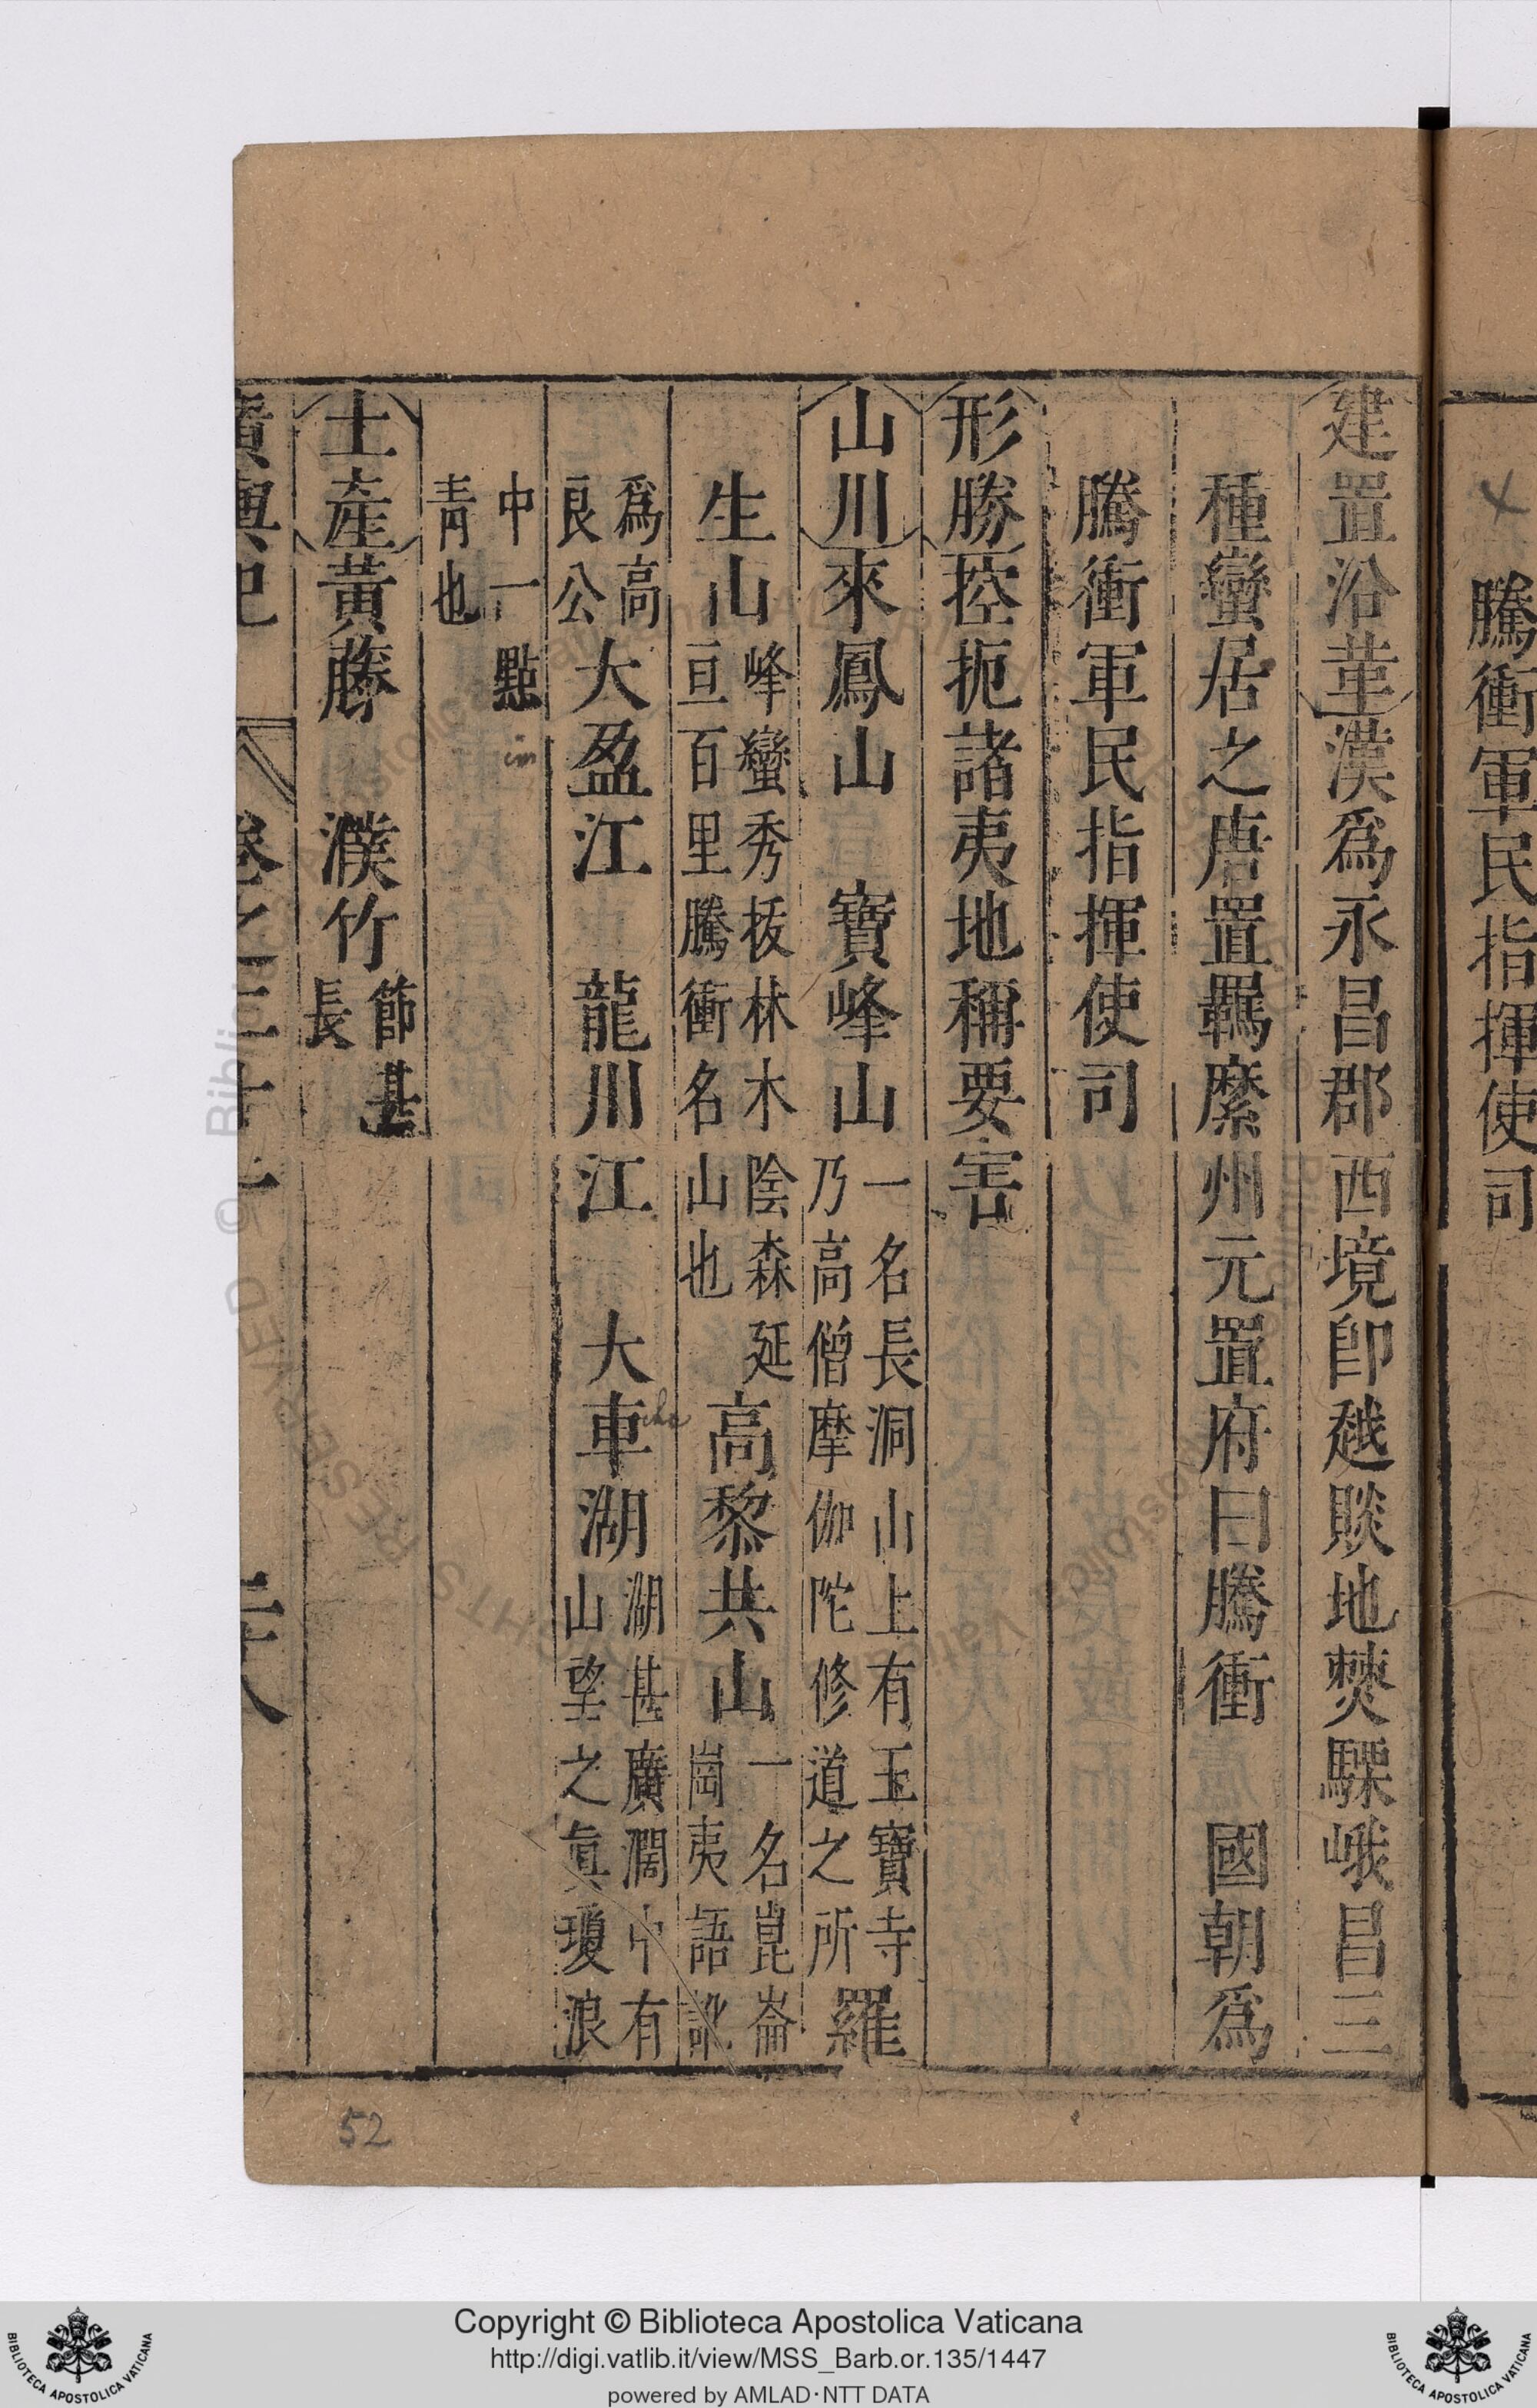 騰衝軍民指揮使司
建置沿革漢爲永昌郡西境卽越賧地僰驃峨昌三
種蠻居之唐置羈縻州元置府曰騰衝 國朝爲
騰衝軍民指揮使司
形勝控扼諸夷地稱要害
山川來鳳山 寶峰山一名長洞山上有玉寶寺乃高僧摩伽陀修道之所羅
生山峰蠻秀拔林木陰森延亘百里騰衝名山也高黎共山一名崑崙崗夷語訛
爲高良公大盈江 龍川江 大車湖湖甚廣濶中有山望之眞瓊浪
中一點青也
土產黃藤 濮竹節甚長
廣輿記 卷之二十一 二十八
52
Copyright © Biblioteca Apostolica Vaticana
http://digi.vatlib.it/view/MSS_Barb.or.135/1447
powered by AMLAD·NTT DATA
BIBLIOTECA APOSTOLICA VATICANA
BIBLIOTECA APOSTOLICA VATICANA